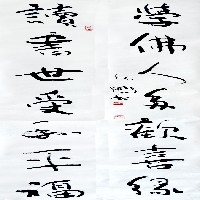 學佛人多歡喜緣
讀書世受和平福